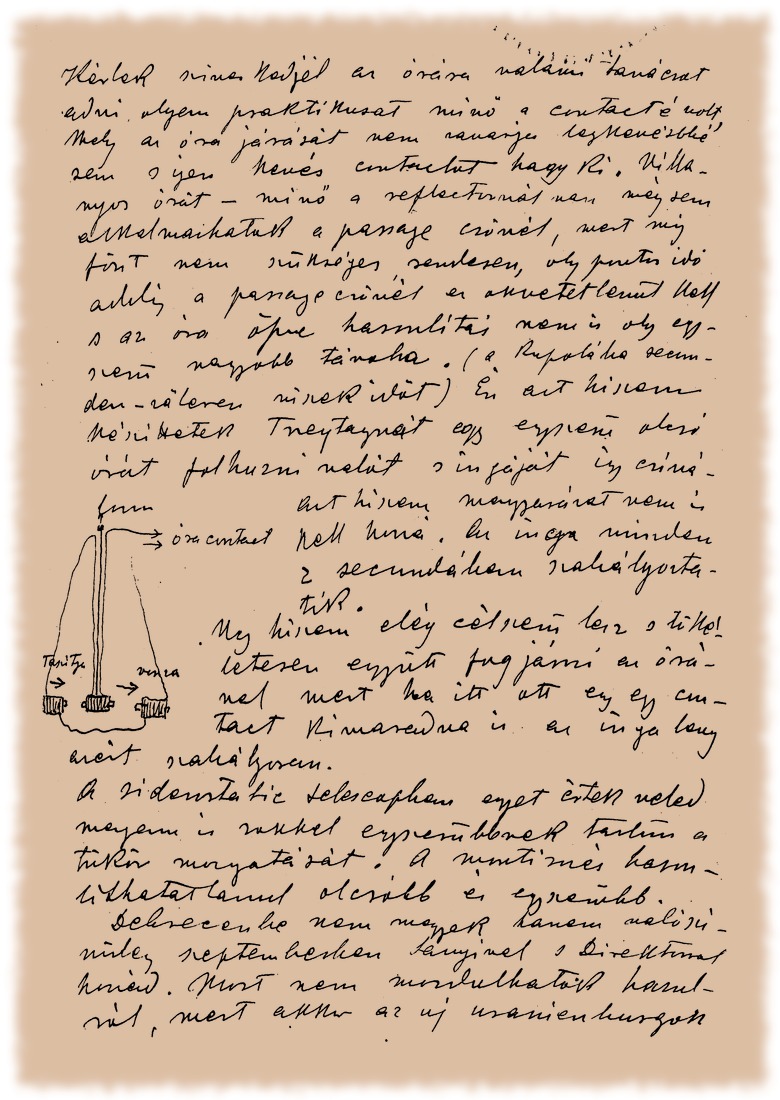 Kérlek szíveskedjél az órára valami tanácsot
adni olyan praktikusat minő a contacté volt,
mely az óra járását nem zavarja legkevésbbé
sem s ijen kevés contactot hagy ki. Villa-
nyos órát – minő a reflectornál van mégsem
alkalmazhatok a passage csőnél, mert míg
fönt nem szükséges rendesen, oly pontos idő
addig a passage csőnél ez okvetetlenül kell
s az óra össze hasonlítás nem is oly egy-
szerű nagyobb távolba. (a kupolába secun-
den-zäleren viszek időt) Én azt hiszem
készíttetek Treytagnál egy egyszerű olcsó
órát felhuzni valót s ingáját így csiná-
azt hiszem magyarázat nem is
kell hozzá. Az inga minden
2 secundában szabályozta-
tik.
fonn
óra contact
taszitja
vonza
Ugy hiszem elég célszerű lesz s töké-
letesen együtt fog járni az órá-
val mert ha itt ott egy egy con-
tact kimaradna is az inga long
azért szabályosan.
A siderostatic telescopban egyet értek veled
magam is sokkal egyszerűbbnek tartom a
tükör mozgatását. A montirozás hason-
lithatatlanul olcsóbb és egyszerűbb.
Debrecenbe nem megyek hanem valószi-
nüleg septemberben Lányival s Direktorral
hozzád. Most nem mozdulhatok hazul-
ról, mert akkor az új uranienburgok